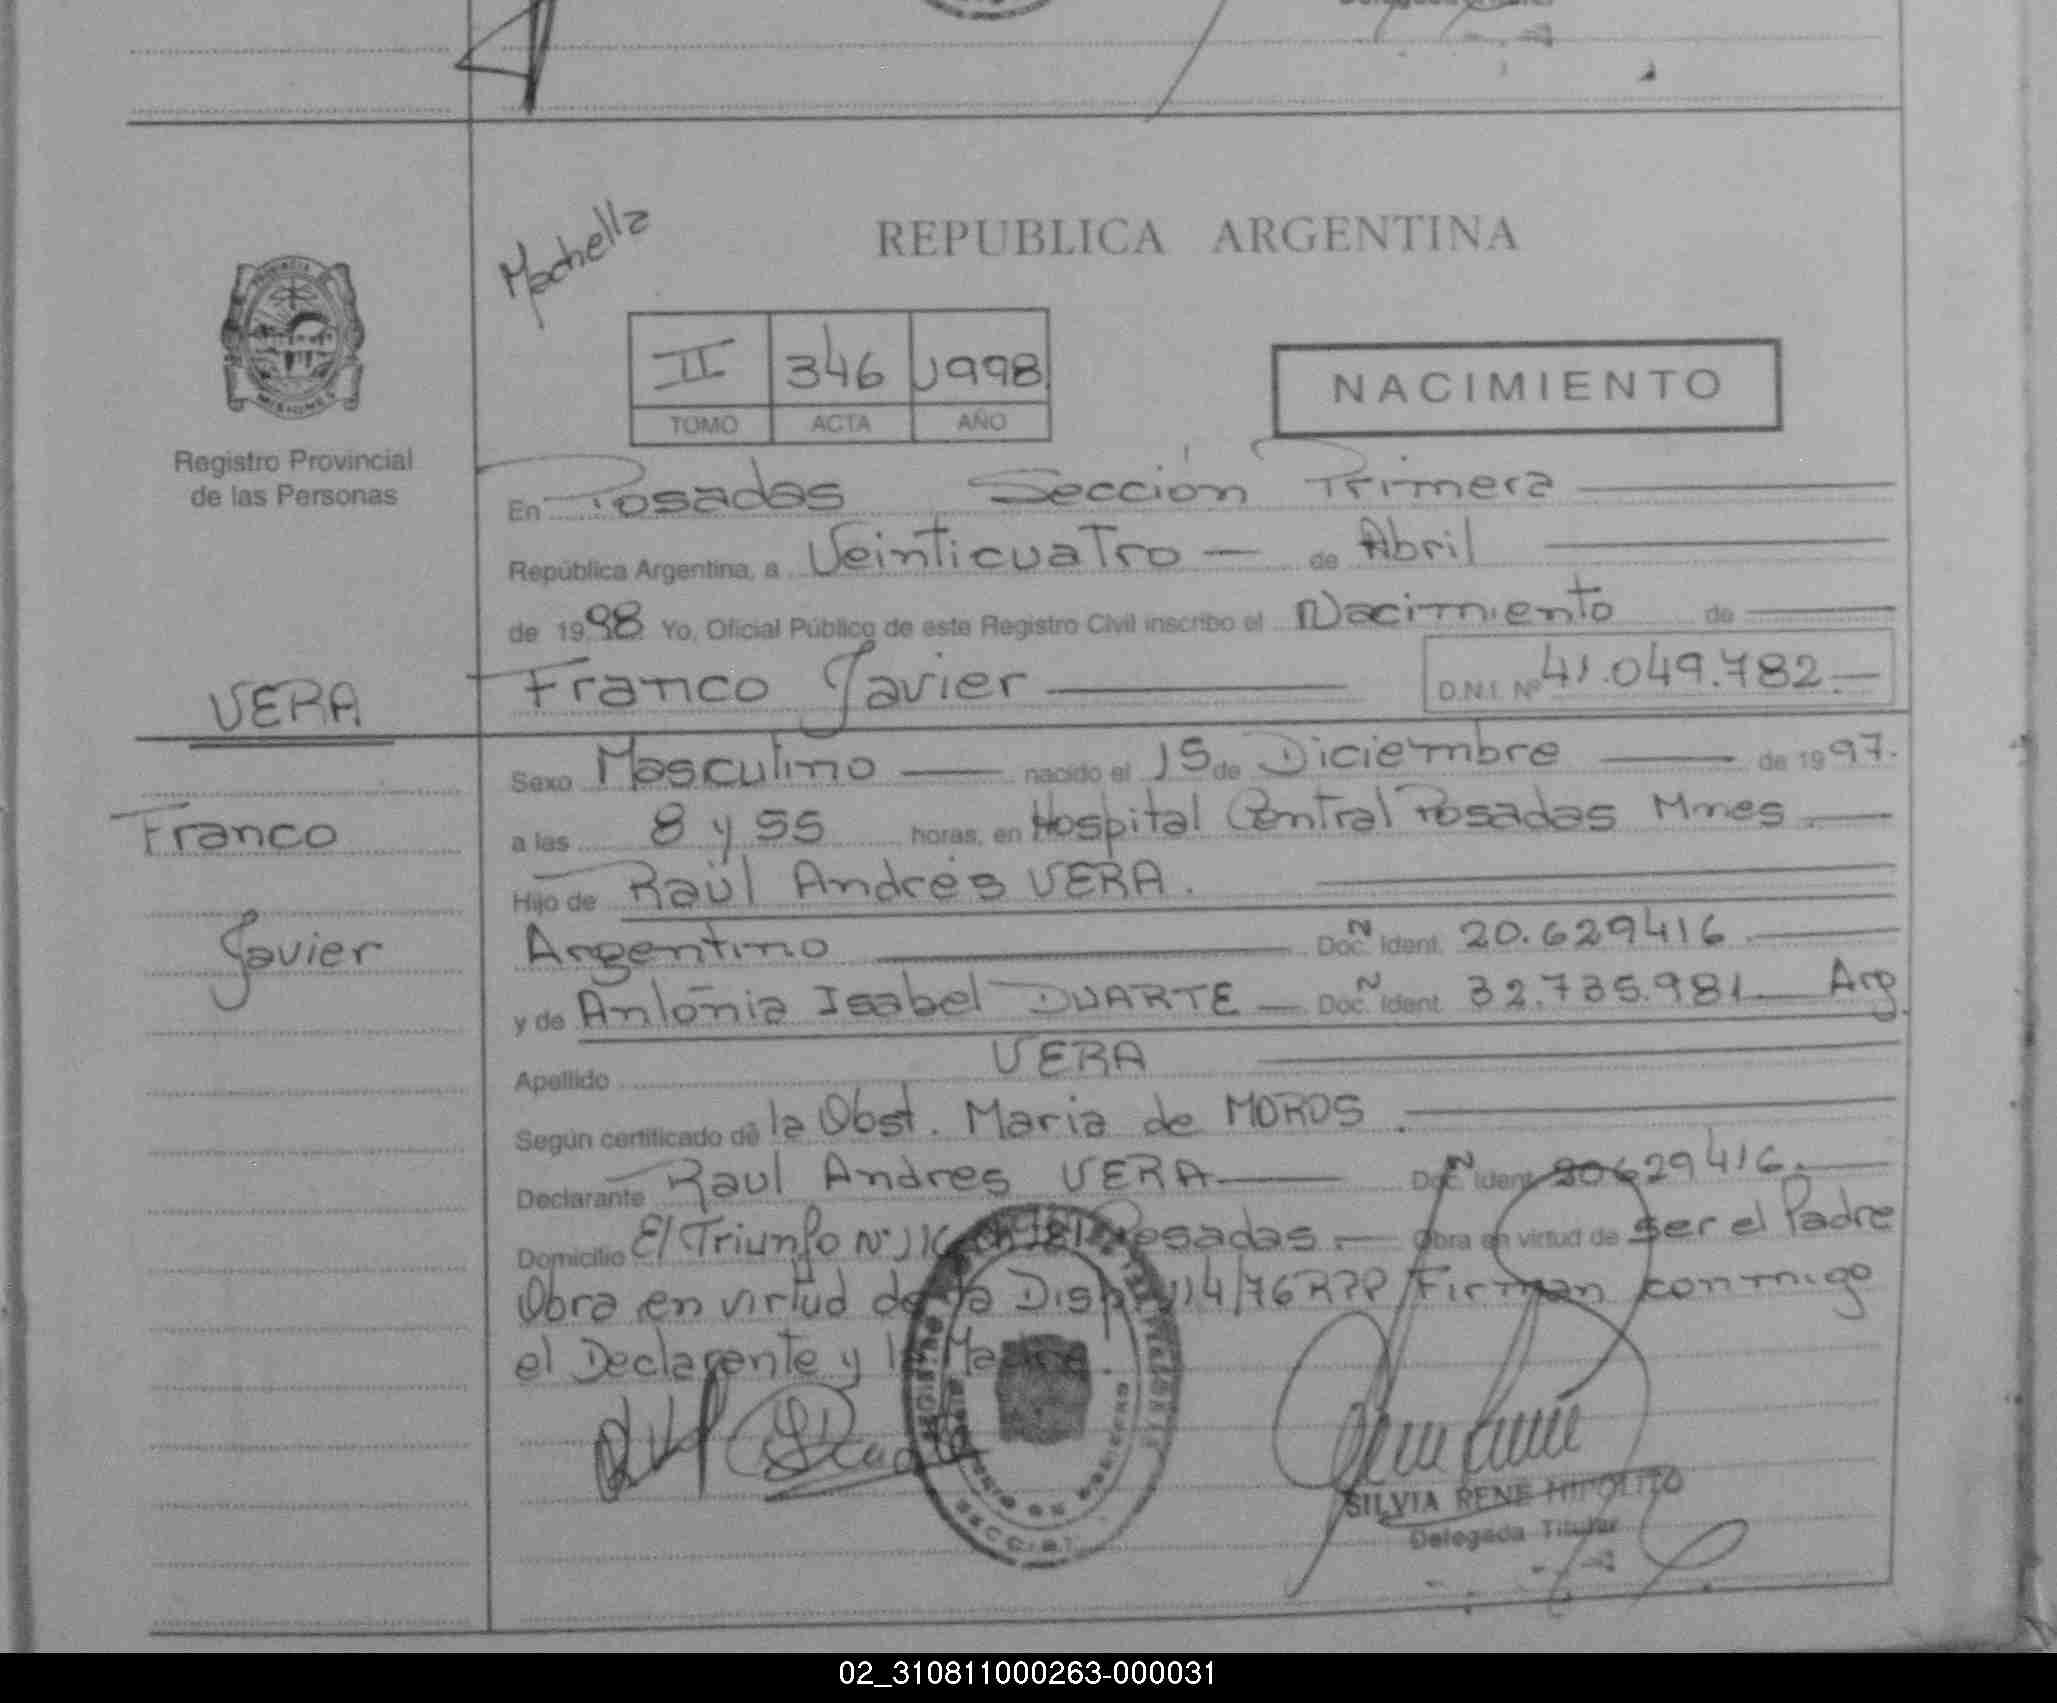 Machella
REPUBLICA ARGENTINA
PROVINCIA
MISIONES
II 346 1998
TOMO ACTA AÑO
NACIMIENTO
Registro Provincial
de las Personas
En Posadas Sección Primera
República Argentina, a Veinticuatro — de Abril
de 1998 Yo, Oficial Público de este Registro Civil inscribo el Nacimiento de
VERA
Franco Javier D.N.I. Nº 41.049.782.—
Sexo Masculino — nacido el 15 de Diciembre — de 1997.
Franco
a las 8 y 55 horas, en Hospital Central Posadas Mnes.—
Hijo de Raúl Andrés VERA.
Javier
Argentino Doc. Ident. Nº 20.629416.—
y de Antonia Isabel DUARTE — Doc. Ident. Nº 32.735.981 — Arg.
Apellido VERA
Según certificado de la Obst. Maria de MOROS.
Declarante Raul Andres VERA — Doc. Ident. Nº 20629416.—
Domicilio El Triunfo Nº Posadas.— Obra en virtud de ser el Padre
Obra en virtud de la Disp. 114/76 RPP Firman conmigo
el Declarante y la Madre.
SILVIA RENE HIPOLITO
Delegada Titular
02_310811000263-000031